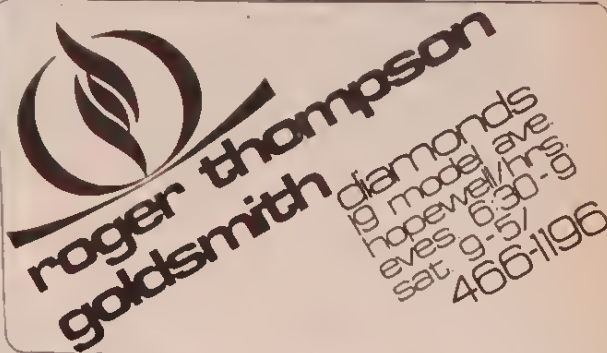 roger thompson
goldsmith
diamonds
19 model ave.
hopewell/hrs.
eves. 6:30-9
sat. 9-5/
466-1196